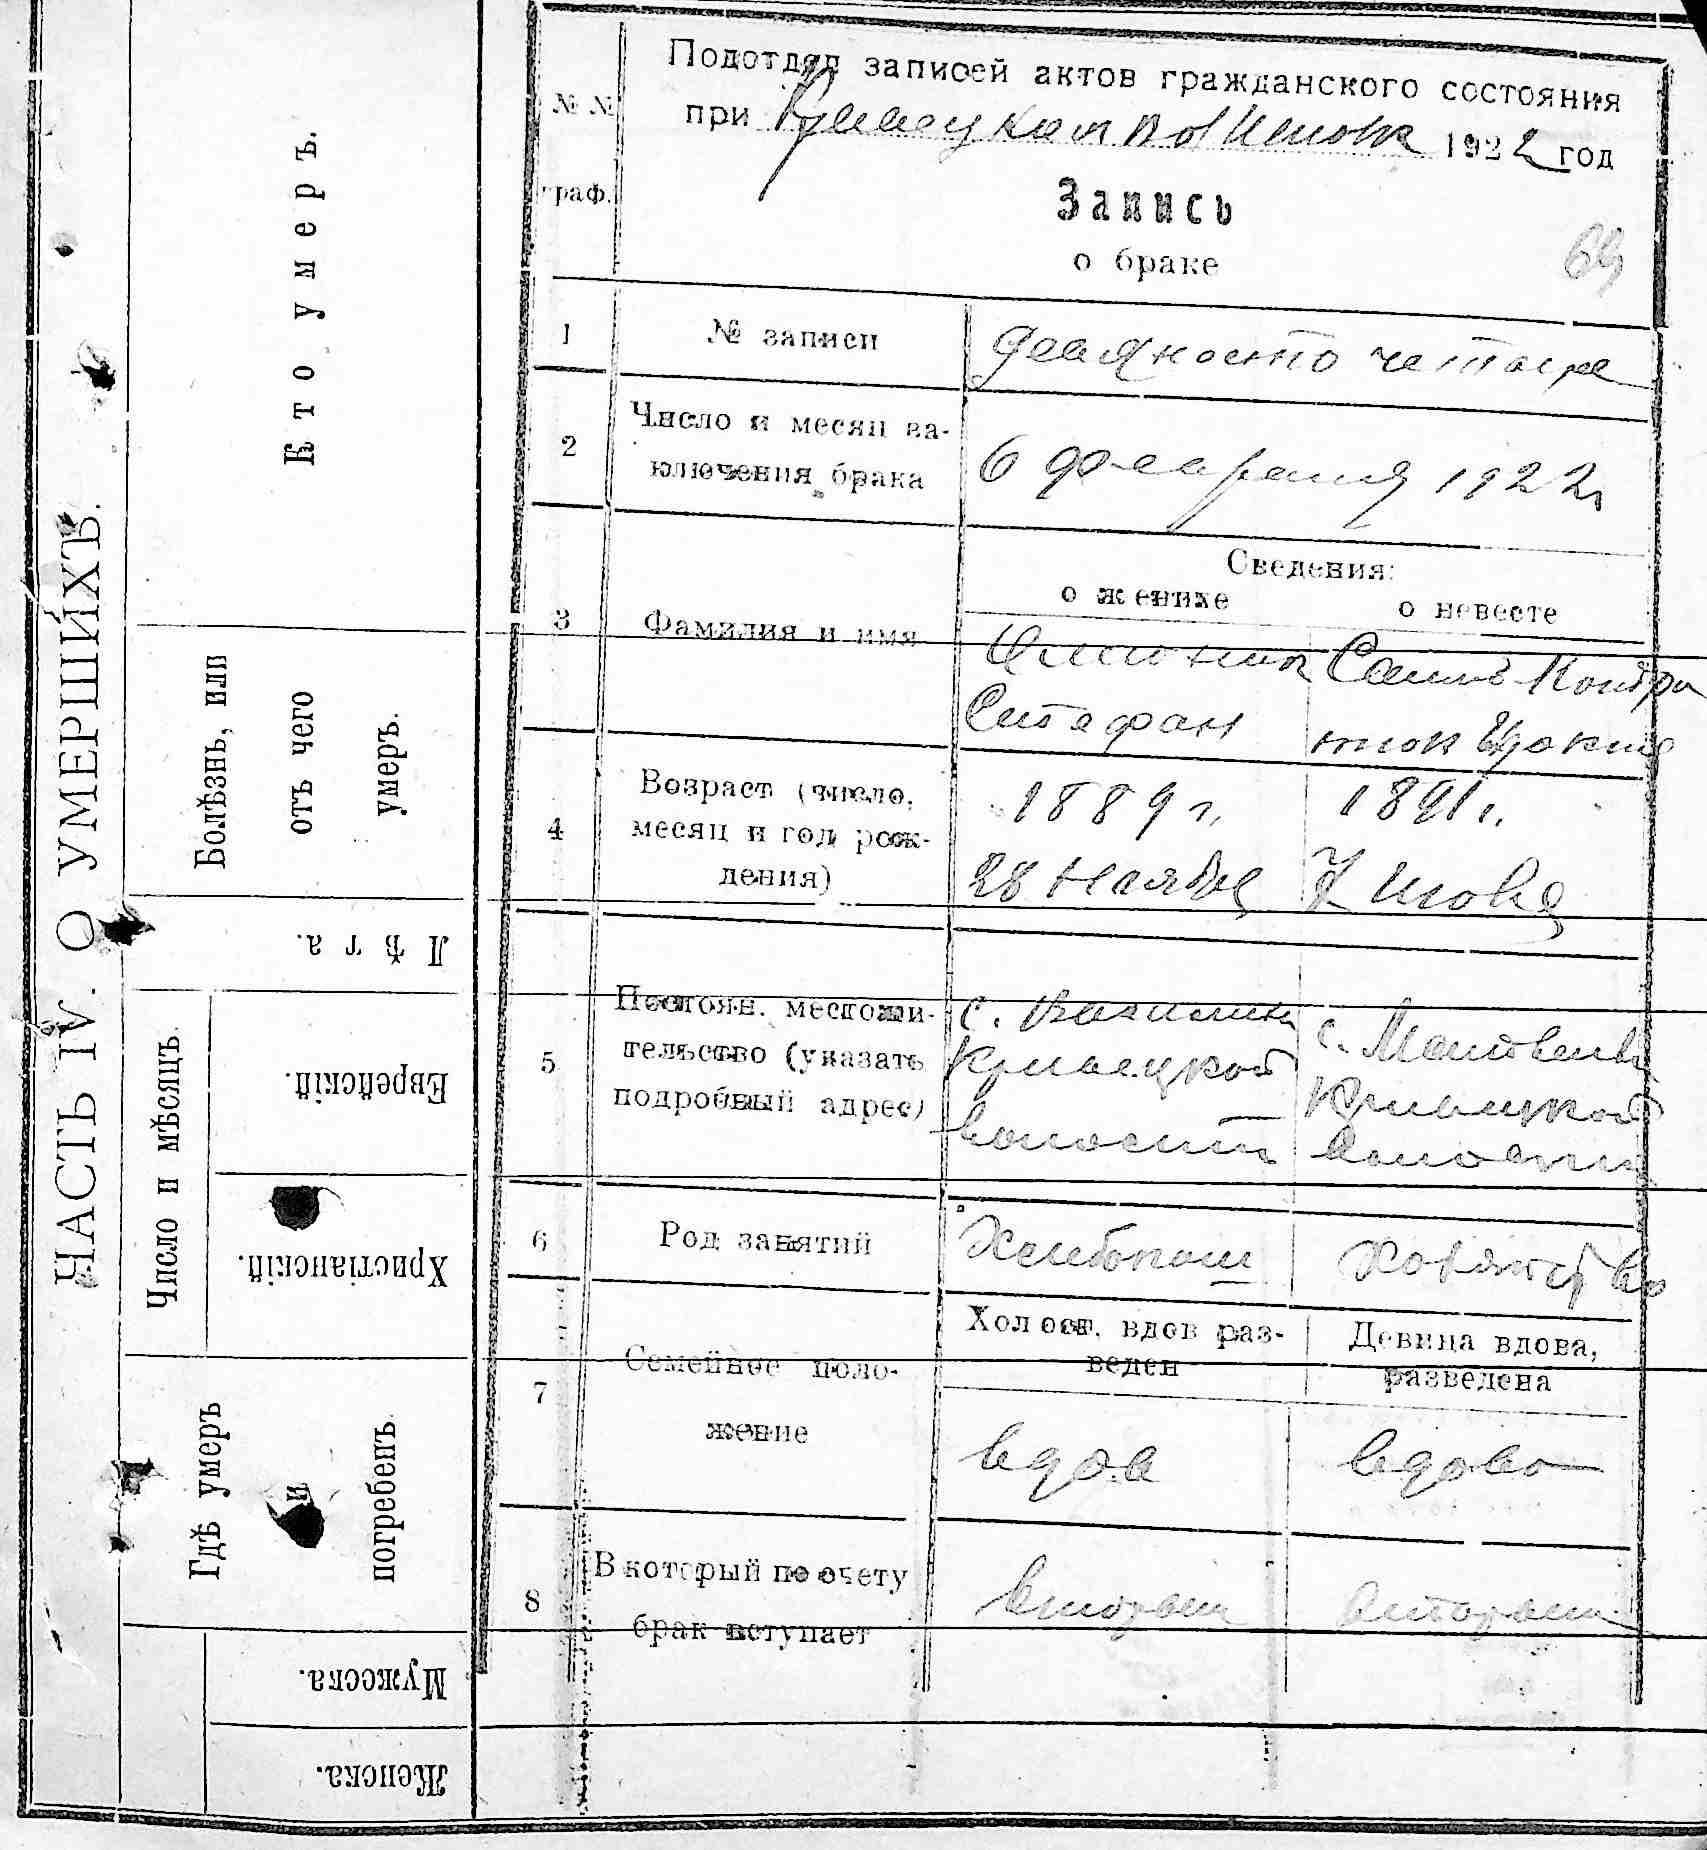 ЧАСТЬ IV. О УМЕРШИХЪ.
Кто умеръ.
Болѣзнь, или
отъ чего
умеръ.
Лѣта.
Число и мѣсяцъ
Еврейскій.
Христіанскій.
Гдѣ умеръ
и
погребенъ
Мужеска.
Женска.
№№
граф.
Подотдел записей актов гражданского состояния
при 1922 год
Запись
о браке
69
1 № записи
девяносто четыре
2 Число и месяц за-
ключения брака
6 февраля 1922 г
Сведения:
о женихе о невесте
3 Фамилия и имя
Стефан
4 Возраст (число,
месяц и год рож-
дения)
1889 г. 1891 г.
28 Ноября Июня
5 Постоян. местожи-
тельство (указать
подробный адрес)
с. с.
волости волости
6 Род занятий
Хлибопаш Хозяйство
7 Семейное поло-
жение
Холост. вдов раз-
веден
Девица вдова,
разведена
вдов вдова
8 В который по счету
брак вступает
второй второй